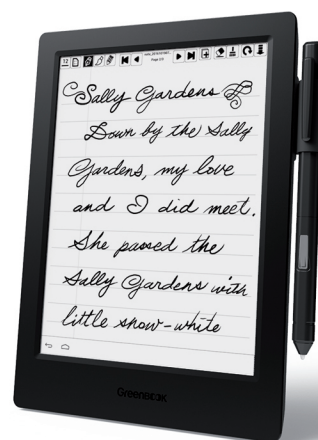 12
Page 2/3
Sally Gardens
Down by the Sally
Gardens, my love
and I did meet.
She passed the
Sally Gardens with
little snow-white
GREENBOOK